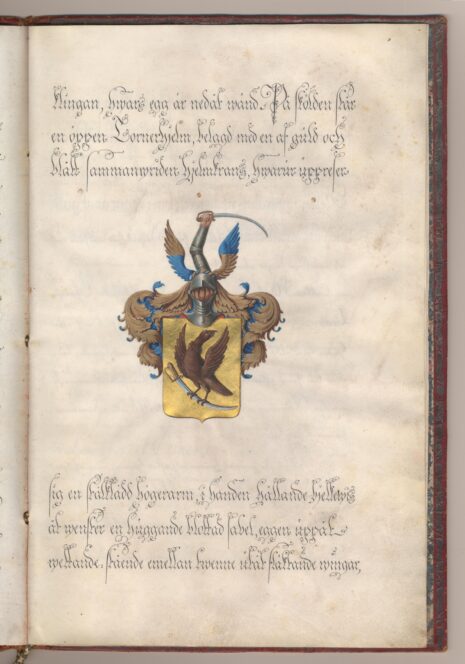 klingan, hwars egg är nedåt wänd. På skölden står
en öppen Tornerhjelm, belagd med en af guld och
blått sammanwriden Hjelmkrans, hwarur uppreser
sig en stålklädd högerarm, i handen hållande
åt wenster en huggande blottad sabel, eggen uppåt
wettande, stående emellan twenne utåt fläktande wingar,